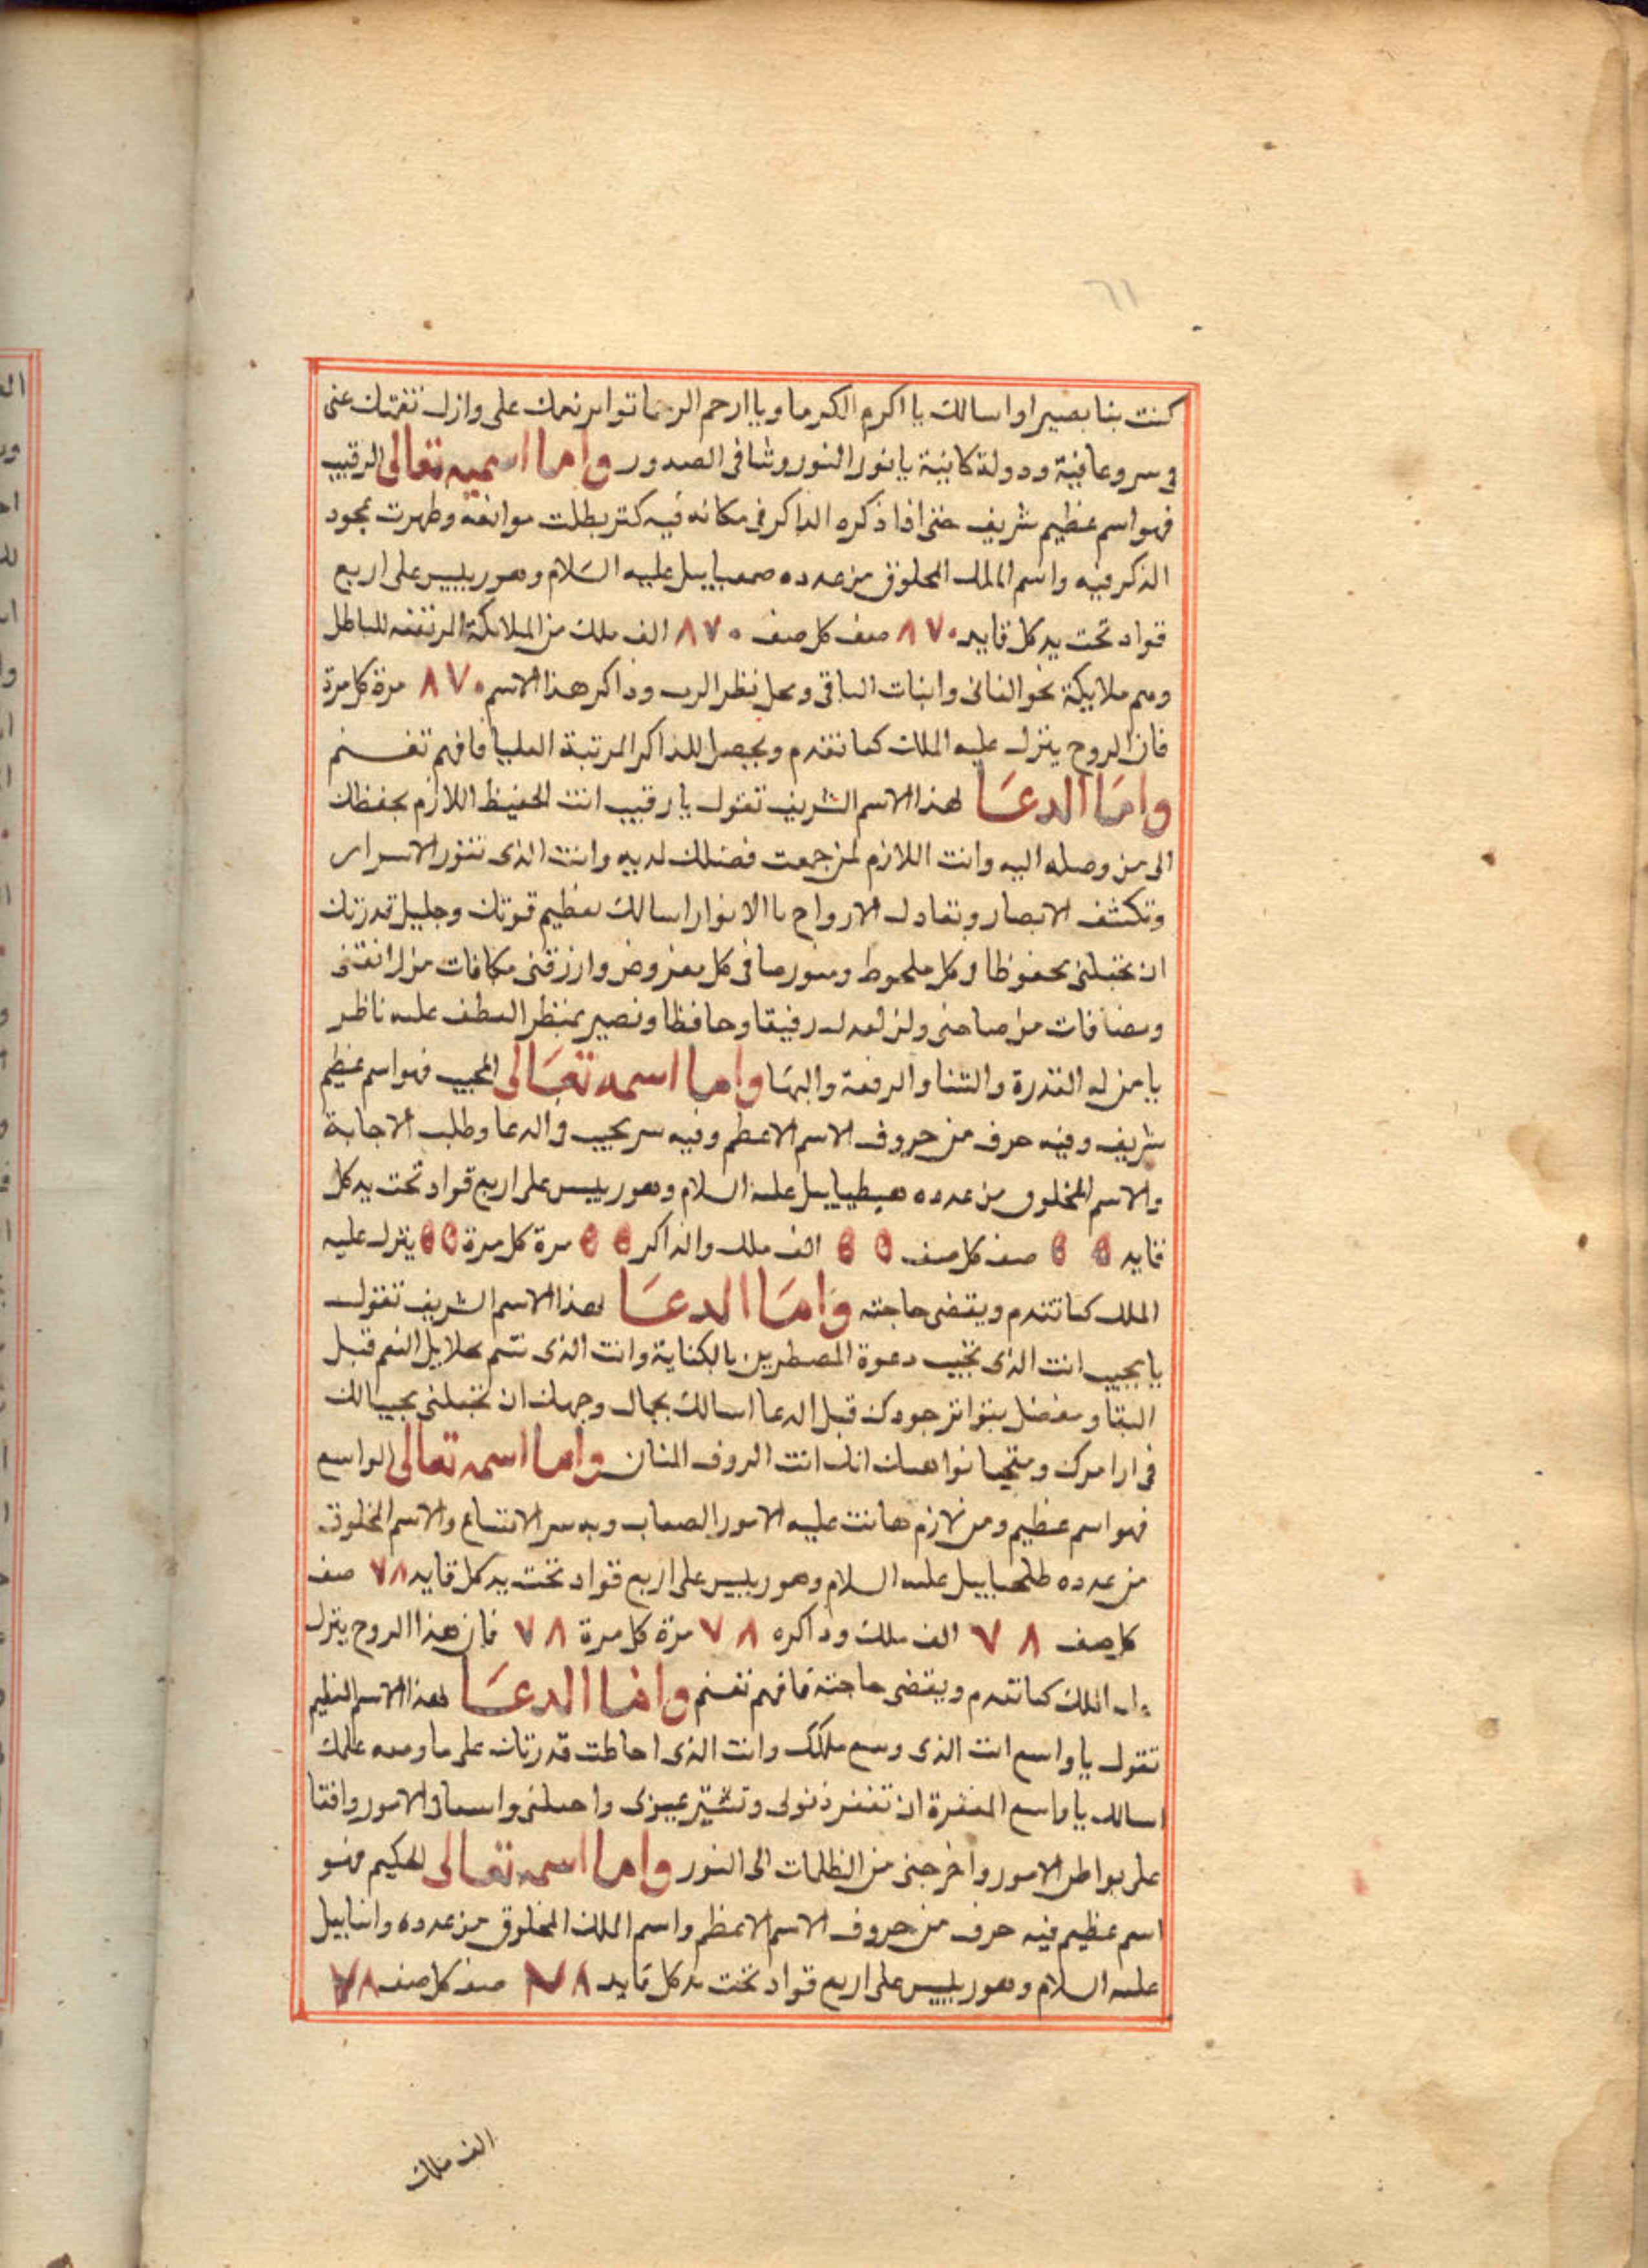 ٦١
كنت بنا بصيرا واسالك يا اكرم الكرما ويا ارحم الرحما تواتر نعمك على وازل نقمتك عنى
فى سر وعافية ودولة كافية يا نور النور وشافى الصدور واما اسميه تعالى الرقيب
فهو اسم عظيم شريف حتى اذا ذكره الذاكر فى مكانه فيه كنز بطلت موانعه وظهرت بجود
الذكر فيه واسم الملك المخلوق من عدده صمعياييل عليه السلام وهو رييس على اربع
قواد تحت يد كل قايد ٨٧٠ صف كل صف ٨٧٠ الف ملك من الملايكة للباطل
وهم ملايكة نحو الفانى واثبات الباقى ومحل نظر الرب وذاكر هذا الاسم ٨٧٠ مرة كل مرة
فان الروح ينزل عليه الملك كما تقدم ويحصل للذاكر المرتبة العليا فافهم تغنم
واما الدعا لهذا الاسم الشريف تقول يا رقيب انت الحفيظ اللازم بحفظك
الى من وصله اليه وانت اللازم لمن جمعت فضلك لديه وانت الذى تنور الاسرار
وتكشف الابصار وتعادل الارواح باالانوار اسالك بعظيم قوتك وجليل قدرتك
ان تجعلنى محفوظا فى كل ملحوظ ومنورها فى كل مفروض وارزقنى مكافات من رافقنى
ومضافات من صاحنى رفيقا وحافظا ونصير بمنظر العطف عليه ناظر
يا من له القدرة والثنا والرفعة والبها واما اسمه تعالى المجيب فهو اسم عظيم
شريف وفيه حرف من حروف الاسم الاعظم وفيه سر عجيب فى الدعا وطلب الاجابة
والاسم المخلوق من عدده هيطياييل عليه السلام وهو رييس على اربع قواد تحت يد كل
قايد ٥٥ صف كل صف ٥٥ الف ملك والذاكر ٥٥ مرة كل مرة ٥٥ ينزل عليه
الملك كما تقدم ويقضى حاجته واما الدعا لهذا الاسم الشريف تقول
يا مجيب انت الذى تجيب دعوة المضطرين بالكناية وانت الذى تتم بحلايل النعم قبل
البقا وتفضل بتواتر جودك قبل الدعا اسالك بجمال وجهك ان تجعلنى مجيبا لك
فى اوامرك ومتجها نواهيك انك انت الروف المنان واما اسمه تعالى الواسع
فهو اسم عظيم ومن لازم هانت عليه الامور الصعاب وبه سر الاتساع والاسم المخلوق
من عدده طلحياييل عليه السلام وهو رييس على اربع قواد تحت يد كل قايد ٧٨ صف
كل صف ٧٨ الف ملك وذاكره ٧٨ مرة كل مرة ٧٨ فان هذا الروح ينزل
الملك كما تقدم ويقضى حاجته فافهم تغنم واما الدعا لهذا الاسم العظيم
تقول يا واسع انت الذى وسع ملكك وانت الذى احاطت قدرتك على ما وسعه علمك
اسالك يا واسع المغفرة ان تغفر ذنوبى وتستر عيوبى واجعلنى واسعا فى الامور واقفا
على بواطن الامور واخرجنى من الظلمات الى النور واما اسمه تعالى الحكيم فهو
اسم عظيم فيه حرف من حروف الاسم الاعظم واسم الملك المخلوق من عدده واناييل
عليه السلام وهو رييس على اربع قواد تحت يد كل قايد ٧٨ صف كل صف ٧٨
الف ملك